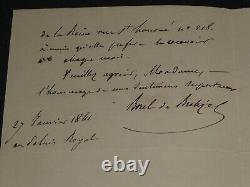 de la Reine rue St honoré n° 218.
à moins qu'elle préfère le recevoir
chaque mois.
Veuillez agréer, Madame,
l'hommage de mes sentiments respectueux
Borel de Bretizel
27 Janvier 1841
au Palais Royal